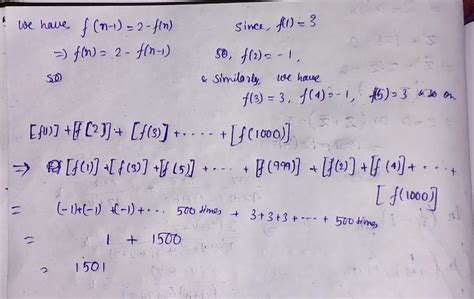 We have f(n-1) = 2 - f(n)
Since, f(1) = 3
⇒ f(n) = 2 - f(n-1)
so, f(2) = -1,
so
& similarly, we have
f(3) = 3, f(4) = -1, f(5) = 3 & so on
[f(1)] + [f(2)] + [f(3)] + ..... + [f(1000)]
⇒ [f(1)] + [f(3)] + [f(5)] + ..... + [f(999)] + [f(2)] + [f(4)] + ..... +
[f(1000)]
= (-1)+(-1)+(-1)+... 500 times + 3+3+3+ ... + 500 times
= 1 + 1500
= 1501